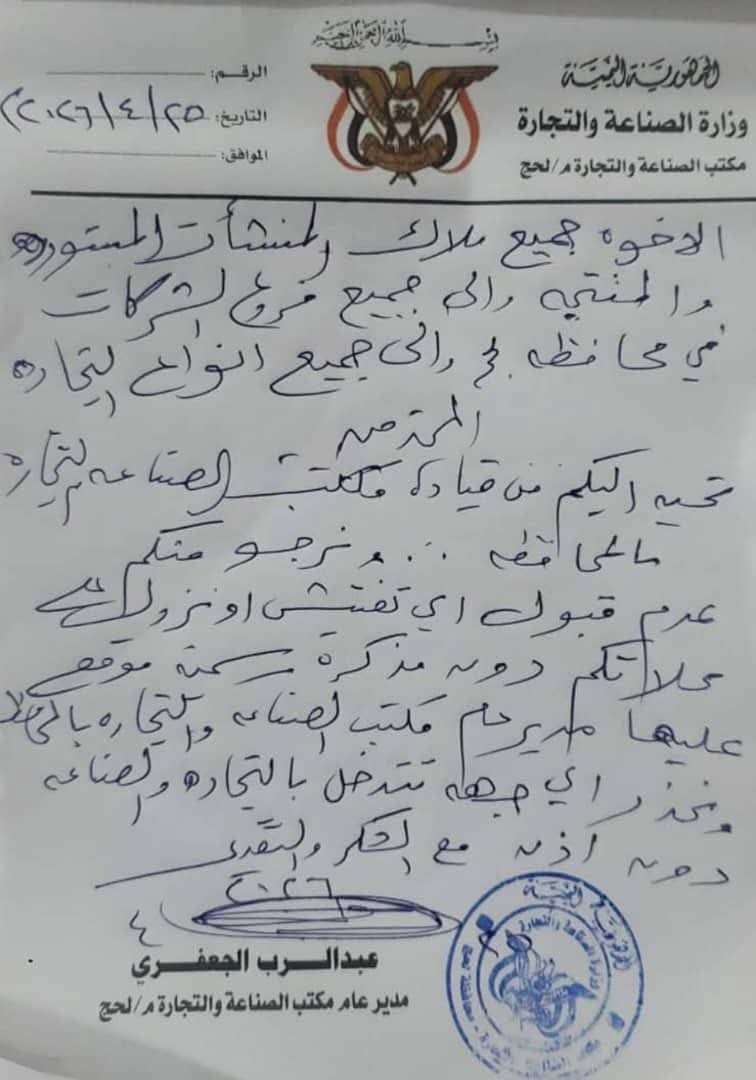 بسم الله الرحمن الرحيم
الجمهورية اليمنية
وزارة الصناعة والتجارة
مكتب الصناعة والتجارة م/لحج
الرقم:
التاريخ: ٢٥/٤/٢٠٢٦
الموافق:
الاخوه جميع ملاك المنشأت المستورده
والمنتجه والى جميع فروع الشركات
في محافظه لحج والى جميع انواع التجاره
المحترمين
تحيه اليكم من قيادة مكتب الصناعه والتجاره
بالمحافظه ... ونرجو منكم
عدم قبول اي تفتش او نزول على
محلاتكم دون مذكرة رسمية موقع
عليها مدير عام مكتب الصناعه والتجاره بالمحافظه
ونحذر اي جهه تتدخل بالتجاره والصناعه
دون اذن مع الشكر والتقدير
٢٠٢٦
٤
عبدالرب الجعفري
مدير عام مكتب الصناعة والتجارة م/لحج
الجمهورية اليمنية
وزارة الصناعة والتجارة